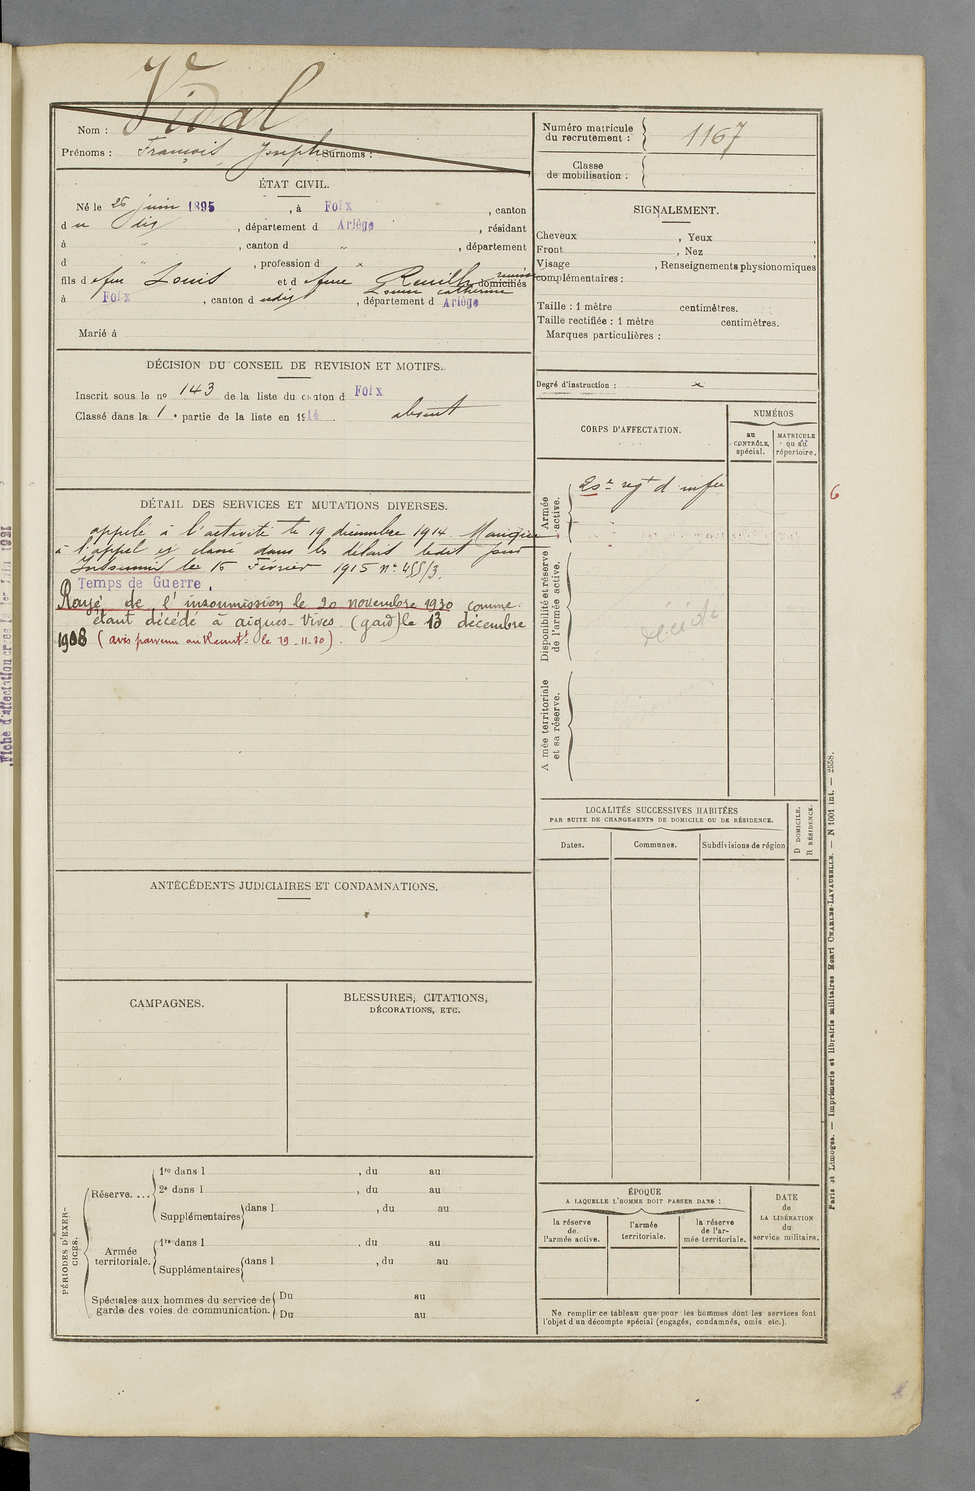 Vidal
Nom :
Prénoms : François Joseph Surnoms :
Numéro matricule
du recrutement : 1167
Classe
de mobilisation :
ÉTAT CIVIL.
Né le 26 juin 1895, à Foix, canton
du dit, département d Ariège, résidant
à " , canton d " , département
d " , profession d x
fils d feu Louis et d feue domiciliés
Louise Catherine
à Foix, canton d udit, département d Ariège
Marié à
SIGNALEMENT.
Cheveux , Yeux ,
Front , Nez
Visage , Renseignements physionomiques
complémentaires :
Taille : 1 mètre centimètres.
Taille rectifiée : 1 mètre centimètres.
Marques particulières :
Degré d'instruction : x
DÉCISION DU CONSEIL DE REVISION ET MOTIFS.
Inscrit sous le no 143 de la liste du canton d Foix
Classé dans la 1e partie de la liste en 1914. absent
CORPS D'AFFECTATION.
NUMÉROS
au
CONTRÔLE
spécial.
MATRICULE
ou au
répertoire.
Armée
active.
regt d'infie
6
Disponibilité et réserve
de l'armée active.
décédé
Armée territoriale
et sa réserve.
DÉTAIL DES SERVICES ET MUTATIONS DIVERSES.
appelé à l'activité le 19 décembre 1914. Manque
à l'appel et classé dans les ledit jour
Insoumis le 15 Février 1915 no 455/3.
Temps de Guerre.
Rayé de l'insoumission le 20 novembre 1930 comme
étant décédé à aigues-Vives (gard) le 13 décembre
1908 (avis parvenu au Recrutt le 19-11-30).
Fiche d'affectation
LOCALITÉS SUCCESSIVES HABITÉES
PAR SUITE DE CHANGEMENTS DE DOMICILE OU DE RÉSIDENCE.
Dates.
Communes.
Subdivisions de région
D DOMICILE.
R RÉSIDENCE.
ANTÉCÉDENTS JUDICIAIRES ET CONDAMNATIONS.
CAMPAGNES.
BLESSURES, CITATIONS,
DÉCORATIONS, ETC.
PÉRIODES D'EXER-
CICES.
Réserve....
1re dans l , du au
2e dans l , du au
Supplémentaires dans l , du au
Armée
territoriale.
1re dans l , du au
Supplémentaires dans l , du au
Spéciales aux hommes du service de
garde des voies de communication.
Du au
Du au
ÉPOQUE
A LAQUELLE L'HOMME DOIT PASSER DANS :
la réserve
de
l'armée active.
l'armée
territoriale.
la réserve
de l'ar-
mée territoriale.
DATE
de
LA LIBÉRATION
du
service militaire.
Ne remplir ce tableau que pour les hommes dont les services font
l'objet d'un décompte spécial (engagés, condamnés, omis etc.).
Paris et Limoges. — Imprimerie et librairie militaires Henri CHARLES-LAVAUZELLE. — N 1001 int. — 2558.